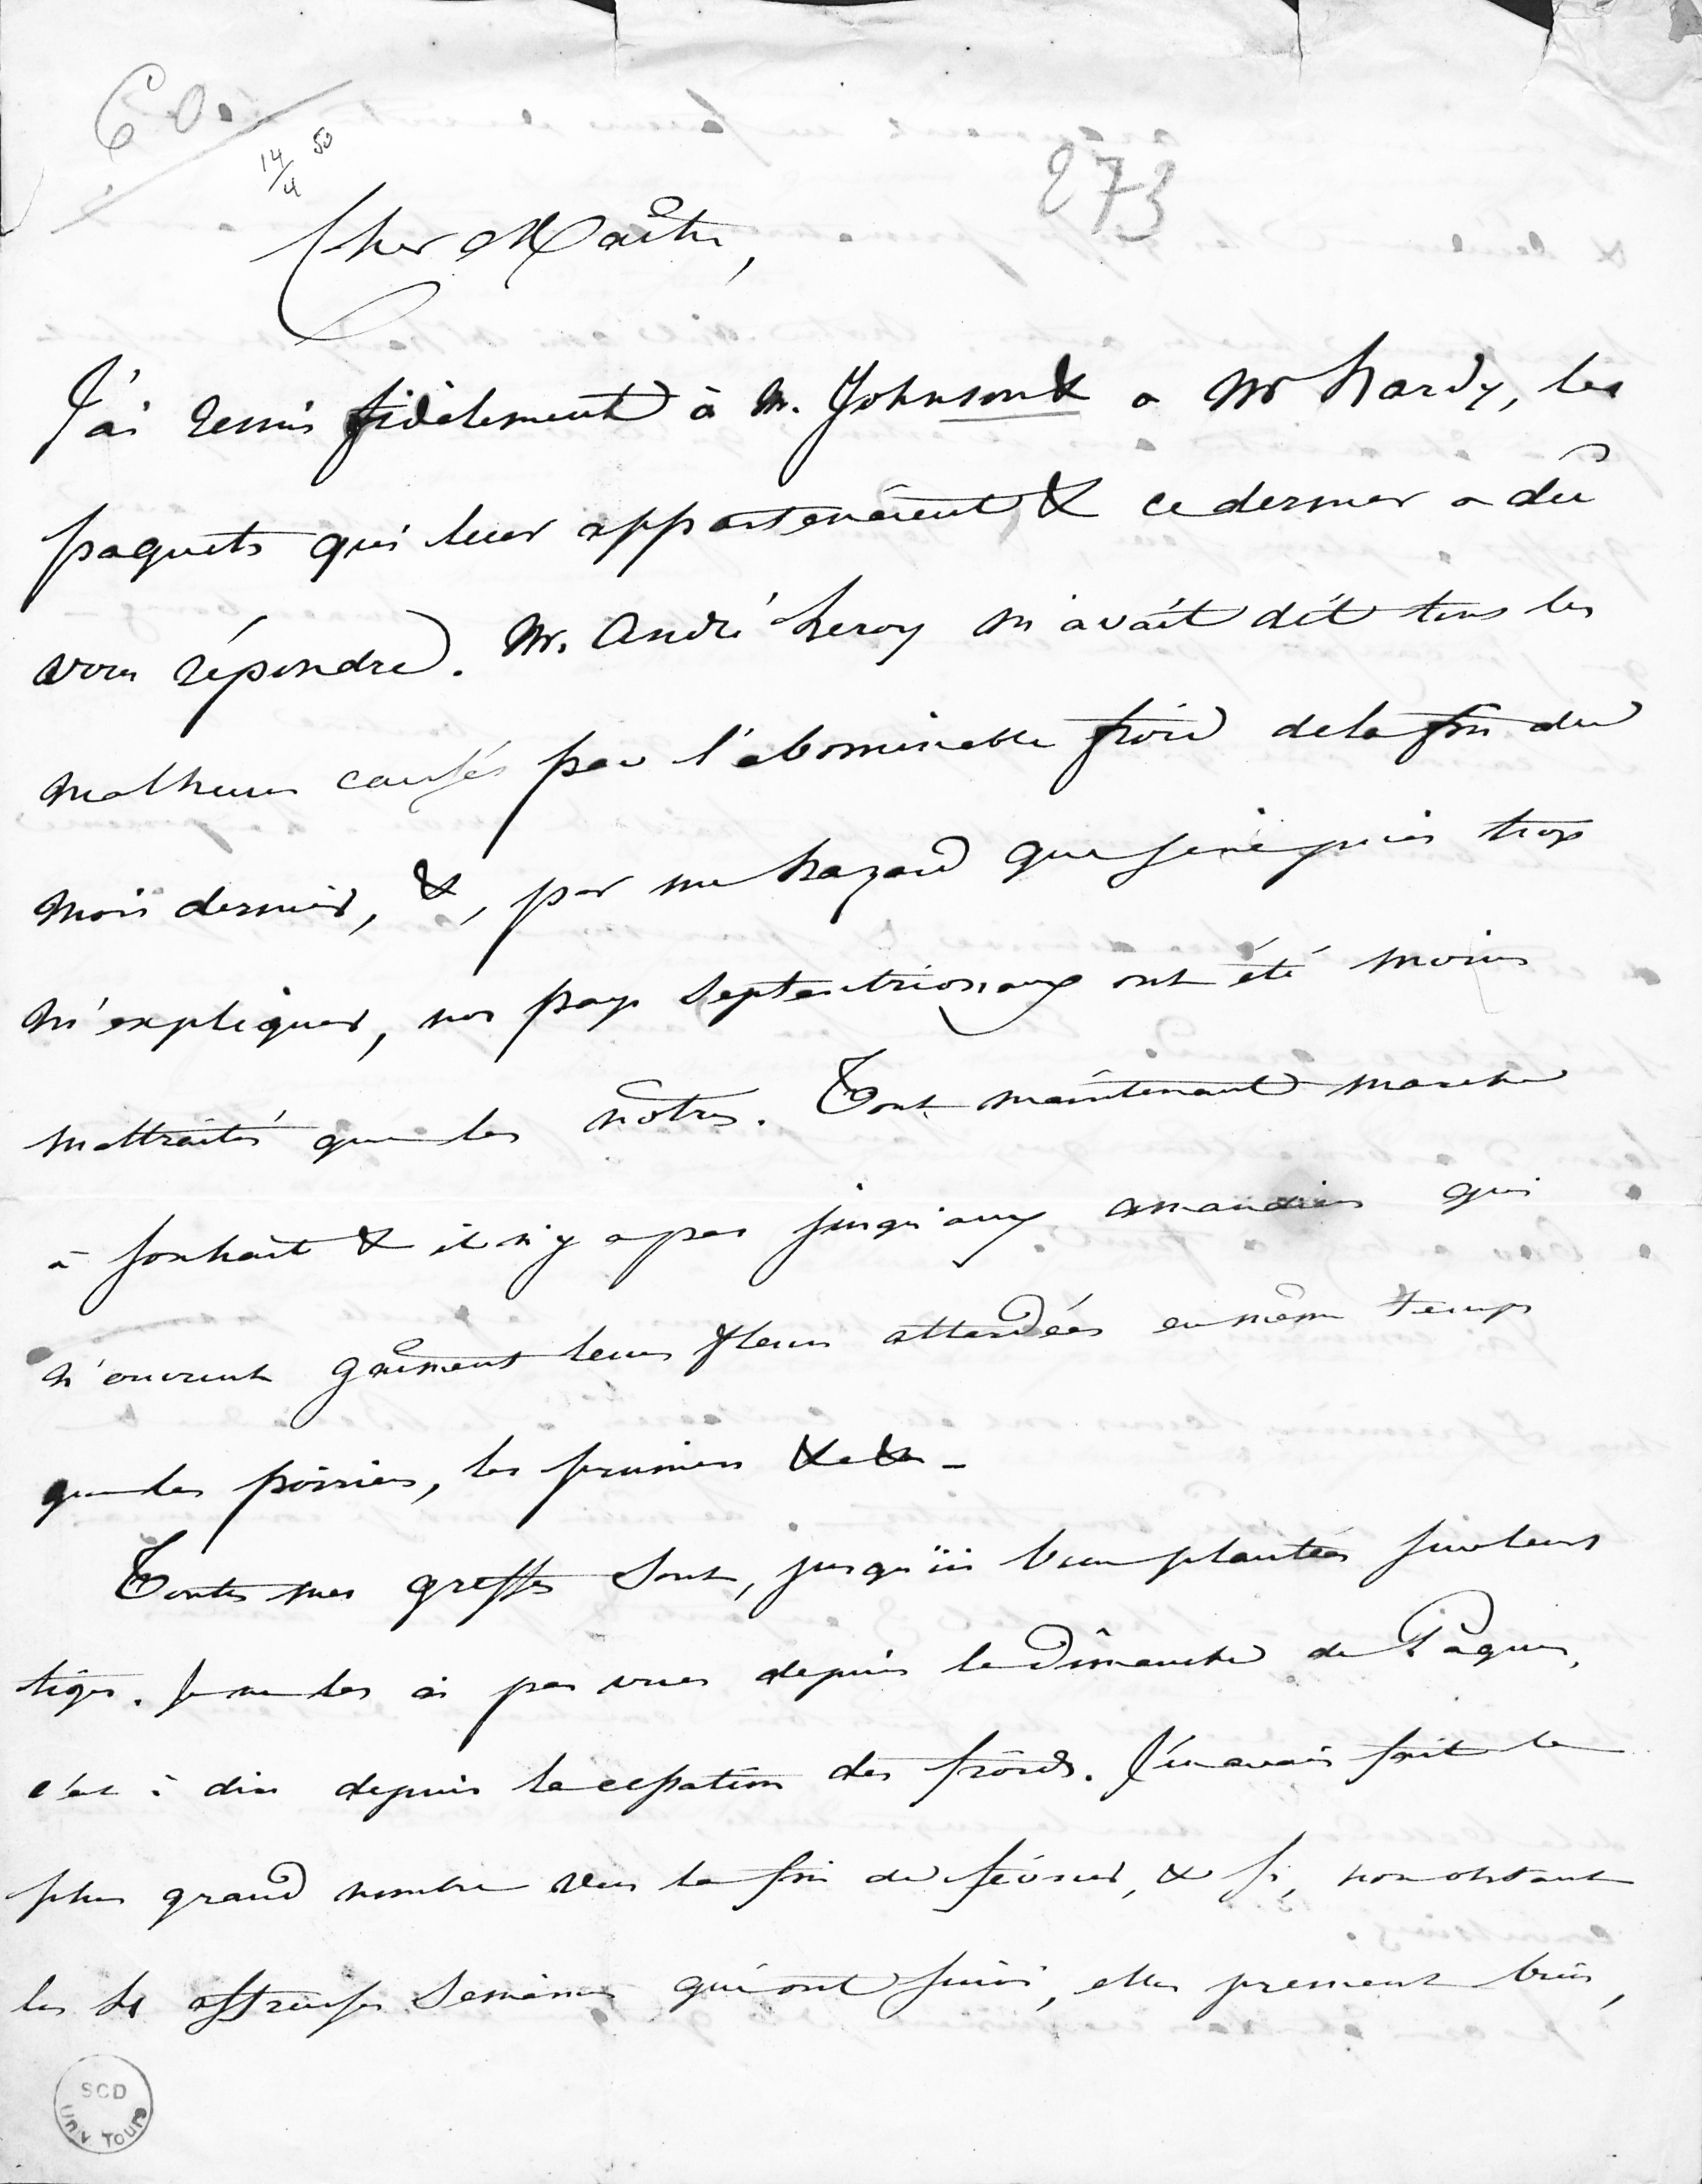 60.
14/4 50
273
Cher Maître,
J'ai remis fidèlement à M. Johnson & a Mr hardy, les
paquets qui leur appartenaient & ce dernier a dû
vous répondre. Mr. André Leroy m'avait dit tous les
malheurs causés par l'abominable froid de la fin du
mois dernier, &, par un hazard que je ne puis trop
m'expliquer, nos pays septentrionaux ont été moins
maltraités que les nôtres. Tout maintenant marche
à souhait & il n'y a pas jusqu'aux amandiers qui
n'ouvrent gaîment leurs fleurs attardées en même temps
que les poiriers, les pruniers &a &a –
Toutes mes greffes sont, jusqu'ici bien plantées sur leurs
tiges. Je ne les ai pas vues depuis le Dimanche de Pâques,
c'est à dire depuis la cessation des froids. J'en avais fait le
plus grand nombre vers la fin de février, & si, nonobstant
les 4 affreuses semaines qui ont suivi, elles prennent bien,
SCD
Univ Tours